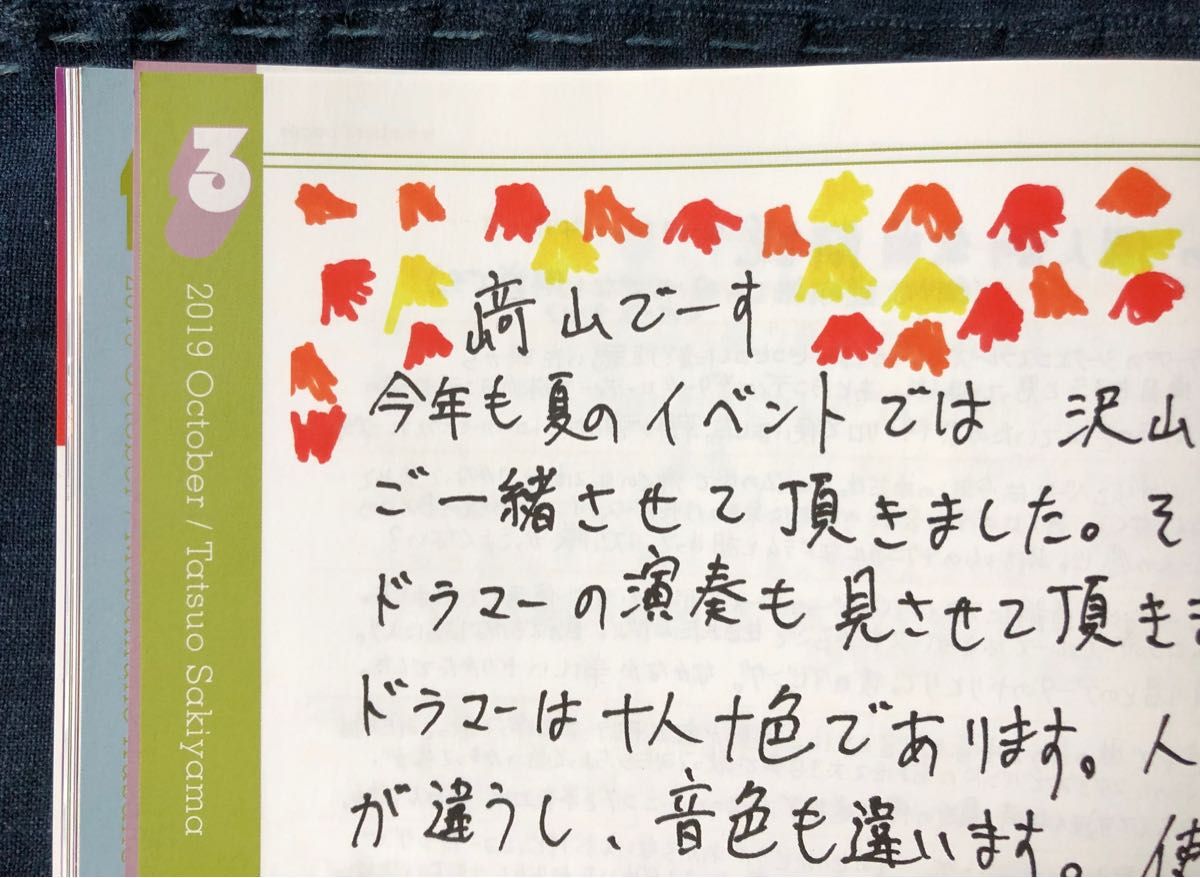 3
2019 October / Tatsuo Sakiyama
﨑山でーす
今年も夏のイベントでは 沢山
ご一緒させて頂きました。そ
ドラマーの演奏も見させて頂き
ドラマーは十人十色であります。人
が違うし、音色も違います。使